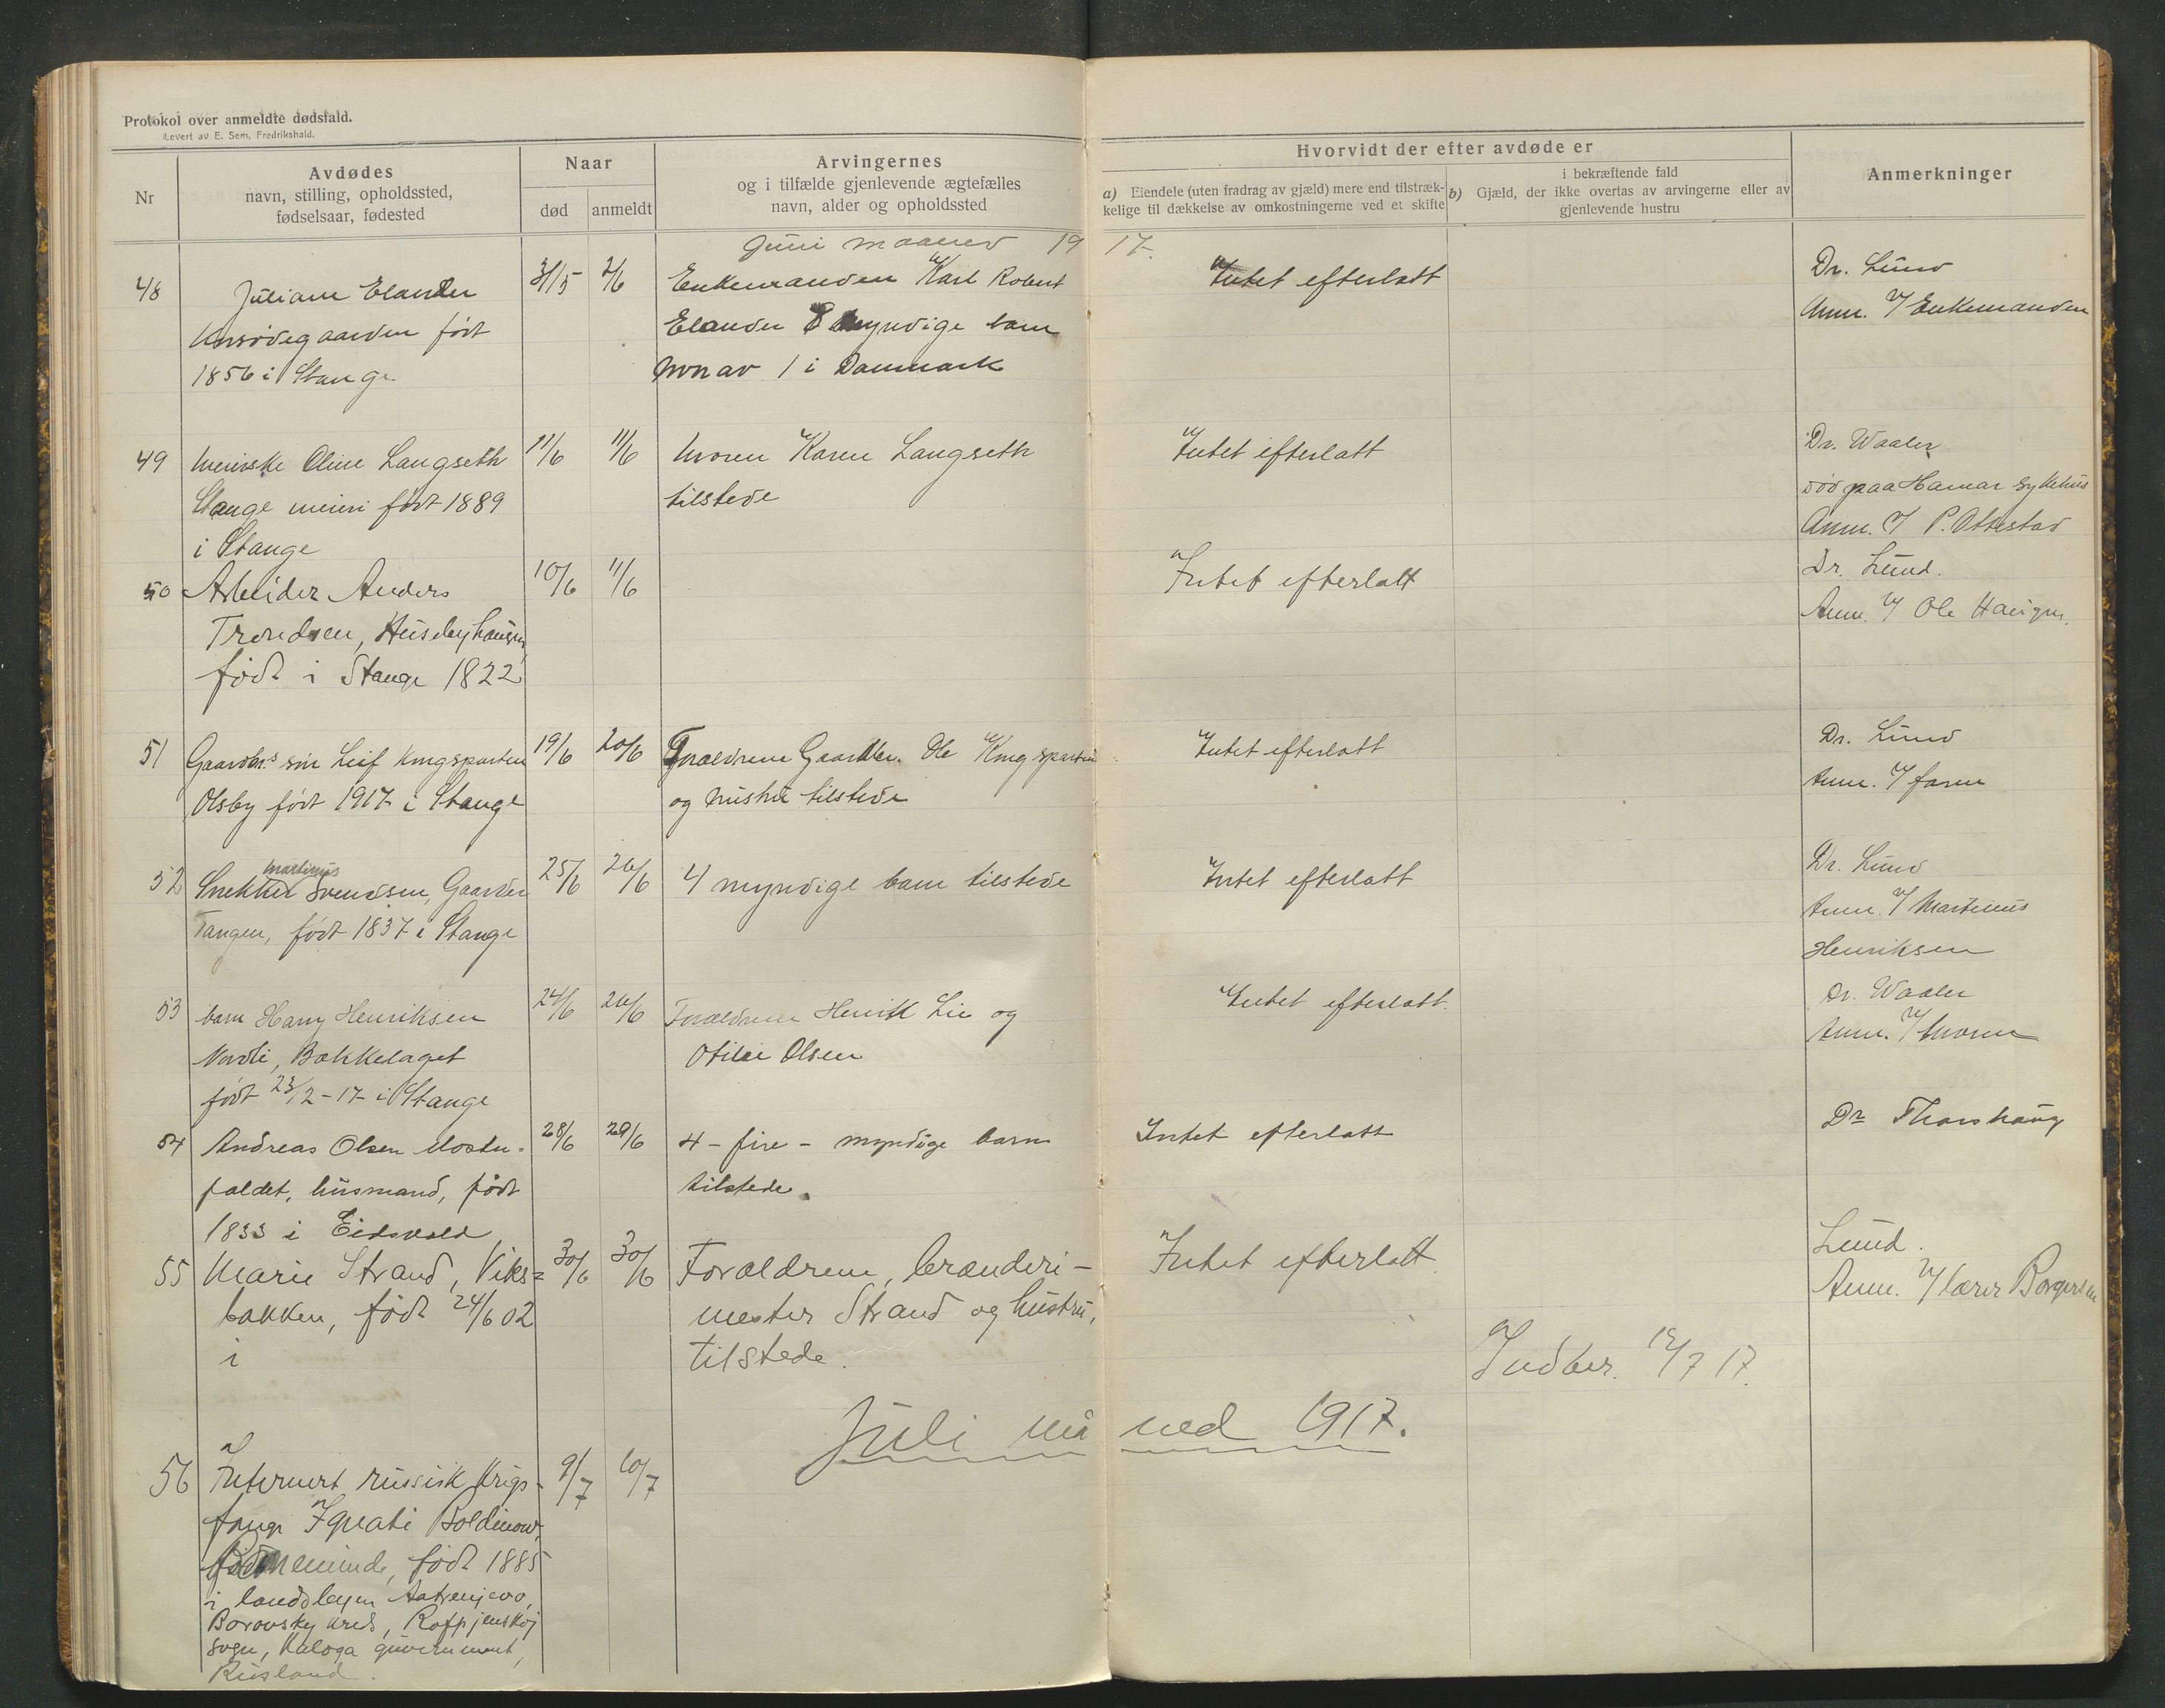 Protokol over anmeldte dødsfald.
Levert av E. Sem, Fredrikshald.
Nr
Avdødes
navn, stilling, opholdssted,
fødselsaar, fødested
Naar
død
anmeldt
Arvingernes
og i tilfælde gjenlevende ægtefælles
navn, alder og opholdssted
Hvorvidt der efter avdøde er
a) Eiendele (uten fradrag av gjæld) mere end tilstræk-
kelige til dækkelse av omkostningerne ved et skifte
i bekræftende fald
b) Gjæld, der ikke overtas av arvingerne eller av
gjenlevende hustru
Anmerkninger
Juni maaned 1917.
48
Juliane Elander
født
1856 i Stange
31/5
2/6
Enkemanden Karl Robert
Elander 8 myndige barn
hvorav 1 i Danmark
Intet efterlatt
Dr. Lund
Anm. v/ Enkemanden
49
meierske Oline Langseth
Stange meieri født 1889
i Stange
11/6
11/6
moren Karen Langseth
tilstede
Intet efterlatt
Dr. Waaler
død paa Hamar sykehus
Anm. v/ P. Ottestad
50
Arbeider Anders
Trondsen, Husebyhaugen,
født i Stange 1822
10/6
11/6
Intet efterlatt
Dr. Lund.
Anm. v/ Ole Haugen.
51
Gaardbr.s søn Leif Kongsparten
Olsby født 1917 i Stange
19/6
20/6
Forældrene Gaardbr. Ole Kongsparten
og hustru tilstede
Intet efterlatt
Dr. Lund
Anm. v/ faren
52
martinus
Snekker Svendsen, Gaarder
Tangen, født 1837 i Stange
25/6
26/6
4 myndige barn tilstede
Intet efterlatt
Dr. Lund
Anm. v/ Martinus
Henriksen
53
barn Harry Henriksen
Nordli, Bækkelaget
født 23/2-17 i Stange
24/6
26/6
Forældrene Henrik Lie og
Otilie Olsen
Intet efterlatt.
Dr. Waaler
Anm. v/ moren
54
Andreas Olsen Mostu-
faldet, husmand, født
1833 i Eidsvold
28/6
29/6
4 - fire - myndige barn
tilstede.
Intet efterlatt
Dr Thorshaug
55
Marie Strand, Viks=
bakken, født 24/6 02
i
30/6
30/6
Forældrene, brænderi-
mester Strand og hustru,
tilstede.
Intet efterlatt.
Lund.
Anm. v/ lærer Borgersen
Indber. 12/7 17.
Juli måned 1917.
56
Internert russisk krigs-
fange Ignati Boldinow,
født 1885
i landsbyen
Borovsky kreds,
sogn, Kaloga guvernement,
Rusland.
9/7
10/7